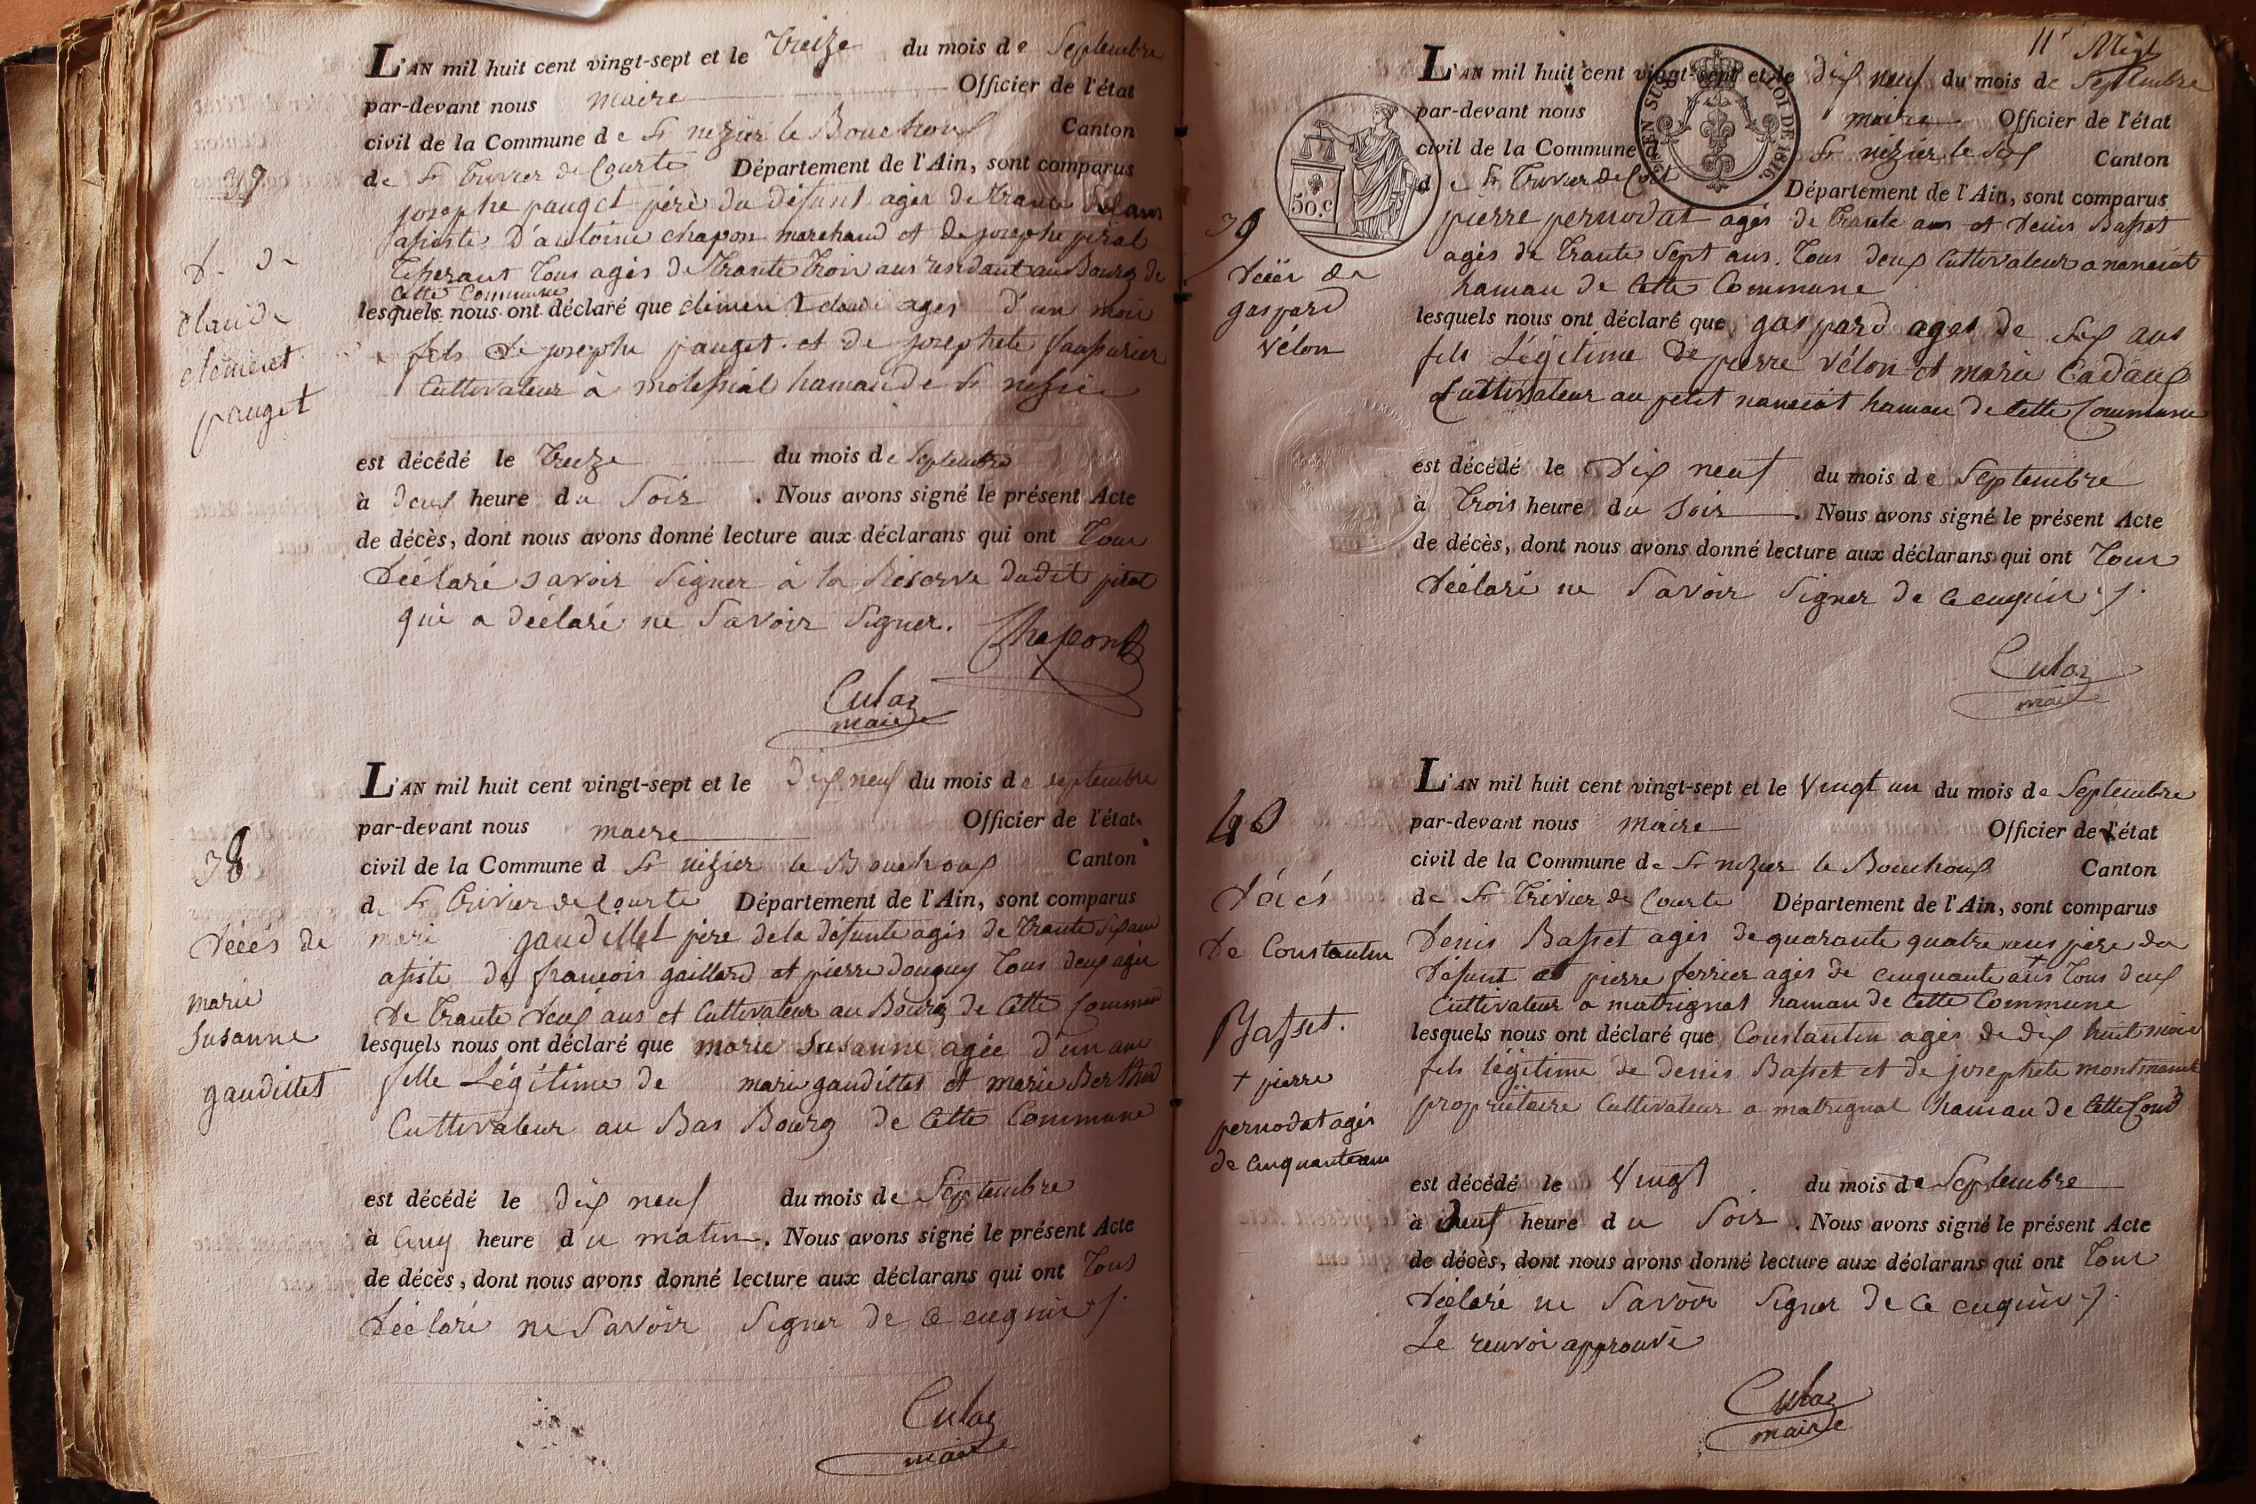 37
d. de
claude
clemeret
pauget
L'AN mil huit cent vingt-sept et le treize du mois de Septembre
par-devant nous maire Officier de l'état
civil de la Commune de St nizier le Bouchoux Canton
de St Trivier de Courte Département de l'Ain, sont comparus
josephe pauget père du défunt agés de trante six ans
assisté d'antoine chapon marchand et de josephe pirat
tisserant tous agés de trante trois ans résidant au Bourg de
cette Commune
lesquels nous ont déclaré que claude agés d'un mois
fils de josephe pauget et de josephete
Cultivateur à hamau de St
est décédé le treize du mois de Septembre
à deux heure du Soir. Nous avons signé le présent Acte
de décès, dont nous avons donné lecture aux déclarans qui ont tous
déclaré savoir signer à la Réserve dudit pirat
qui a déclaré ne Savoir Signer.
Chapon
Culaz
maire
38
décés de
marie
susanne
gaudillet
L'AN mil huit cent vingt-sept et le dix neuf du mois de septembre
par-devant nous maire Officier de l'état
civil de la Commune d St nizier le Bouchoux Canton
de St Trivier de Courte Département de l'Ain, sont comparus
mari gaudillet père de la défunte agés de trante six ans
assisté de françois gaillard et pierre douguy tous deux agés
de trante deux ans et Cultivateur au Bourg de Cette Commune
lesquels nous ont déclaré que marie Susanne agée d'un ans
fille Légitime de mari gaudillet et marie Berthod
Cultivateur au Bas Bourg de Cette Commune
est décédé le dix neuf du mois de Septembre
à Cinq heure du matin. Nous avons signé le présent Acte
de décès, dont nous avons donné lecture aux déclarans qui ont tous
déclaré ne Savoir Signer de ce enquis
Culaz
maire
11e
TIMBRE EN SUS LOI DE 1816.
50.c
39
décès de
gaspard
vélon
L'AN mil huit cent vingt-sept et le dix neuf du mois de Septembre
par-devant nous maire Officier de l'état
civil de la Commune d St nizier le Canton
de St Trivier de Court Département de l'Ain, sont comparus
pierre pernodat agés de trante ans et denis Basset
agés de trante Sept ans. tous deux Cultivateur a naneciat
hamau de Cette Commune
lesquels nous ont déclaré que gaspard agés de six ans
fils Légitime de pierre vélon et marie Cadaux
Cultivateur au petit naneciat hamau de Cette Commune
est décédé le dix neuf du mois de Septembre
à trois heure du soir. Nous avons signé le présent Acte
de décès, dont nous avons donné lecture aux déclarans qui ont tous
déclaré ne Savoir Signer de ce enquis
Culaz
maire
40
décés
de Constantin
Basset.
+ pierre
pernodat agés
de cinquante ans
L'AN mil huit cent vingt-sept et le Vingt un du mois de Septembre
par-devant nous maire Officier de l'état
civil de la Commune de St nizier le Bouchoux Canton
de St Trivier de Courte Département de l'Ain, sont comparus
denis Basset agés de quarante quatre ans père du
défunt et pierre ferrier agés de cinquante ans + tous deux
Cultivateur a matrignat hamau de Cette Commune
lesquels nous ont déclaré que Constantin agés de dix huit mois
fils légitime de denis Basset et de josephete
propriétaire Cultivateur a matrignat hamau de Cette
est décédé le Vingt du mois de Septembre
à heure du Soir. Nous avons signé le présent Acte
de décès, dont nous avons donné lecture aux déclarans qui ont tous
déclaré ne Savoir Signer de ce enquis
Le renvoi approuvé
Culaz
maire